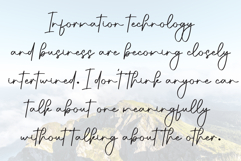 Information technology
and business are becoming closely
intertwined. I don't think anyone can
talk about one meaningfully
without talking about the other.